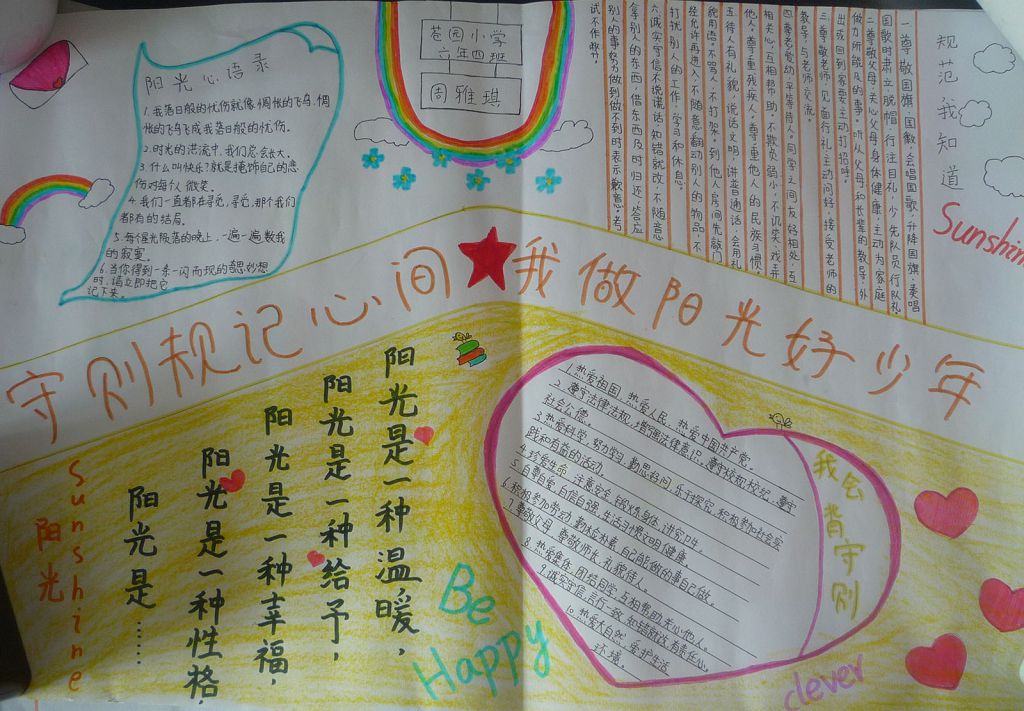 苍园小学
六年四班
周雅琪
阳光心语录
1.我落日般的忧伤就像惆怅的飞鸟,惆
怅的飞鸟飞成我落日般的忧伤。
2.时光的洪流中,我们总会长大。
3.什么叫快乐?就是掩饰自己的悲
伤对每个人微笑。
4.我们一直都在寻觅,寻觅,那个我们
都有的结局。
5.每个星光陨落的晚上,一遍一遍数我
的寂寞。
6.当你得到一条一闪而现的奇思妙想
时,请立即把它
记下来。
规范,我知道
一尊敬国旗国徽,会唱国歌,升降国旗、奏唱
国歌时肃立脱帽,行注目礼,少先队员行队礼。
二尊敬父母,关心父母身体健康,主动为家庭
做力所能及的事。听从父母和长辈的教导,外
出或回到家要主动打招呼。
三尊敬老师,见面行礼,主动问好,接受老师的
教导,与老师交流。
四尊老爱幼,平等待人。同学之间友好相处,互
相关心,互相帮助。不欺负弱小,不讥笑、戏弄
他人。尊重残疾人。尊重他人的民族习惯。
五待人有礼貌,说话文明,讲普通话,会用礼
貌用语。不骂人,不打架。到他人房间先敲门,
经允许再进入,不随意翻动别人的物品,不
打扰别人的工作、学习和休息。
六诚实守信,不说谎话,知错就改,不随意
拿别人的东西,借东西及时归还,答应
别人的事努力做到,做不到时表示歉意。考
试不作弊。
Sunshin
守则规记心间★我做阳光好少年
阳光是一种温暖,
阳光是一种给予,
阳光是一种幸福,
阳光是一种性格,
阳光是……
阳光
Sunshine
Be
Happy
我会背守则
1.热爱祖国,热爱人民,热爱中国共产党。
2.遵守法律法规,增强法律意识。遵守校规校纪,遵守
社会公德。
3.热爱科学,努力学习,勤思好问,乐于探究,积极参加社会实
践和有益的活动。
4.珍爱生命,注意安全,锻炼身体,讲究卫生。
5.自尊自爱,自信自强,生活习惯文明健康。
6.积极参加劳动,勤俭朴素,自己能做的事自己做。
7.尊敬父母,尊敬师长,礼貌待人。
8.热爱集体,团结同学,互相帮助,关心他人。
9.诚实守信,言行一致,知错就改,有责任心。
10.热爱大自然,爱护生活
环境。
clever